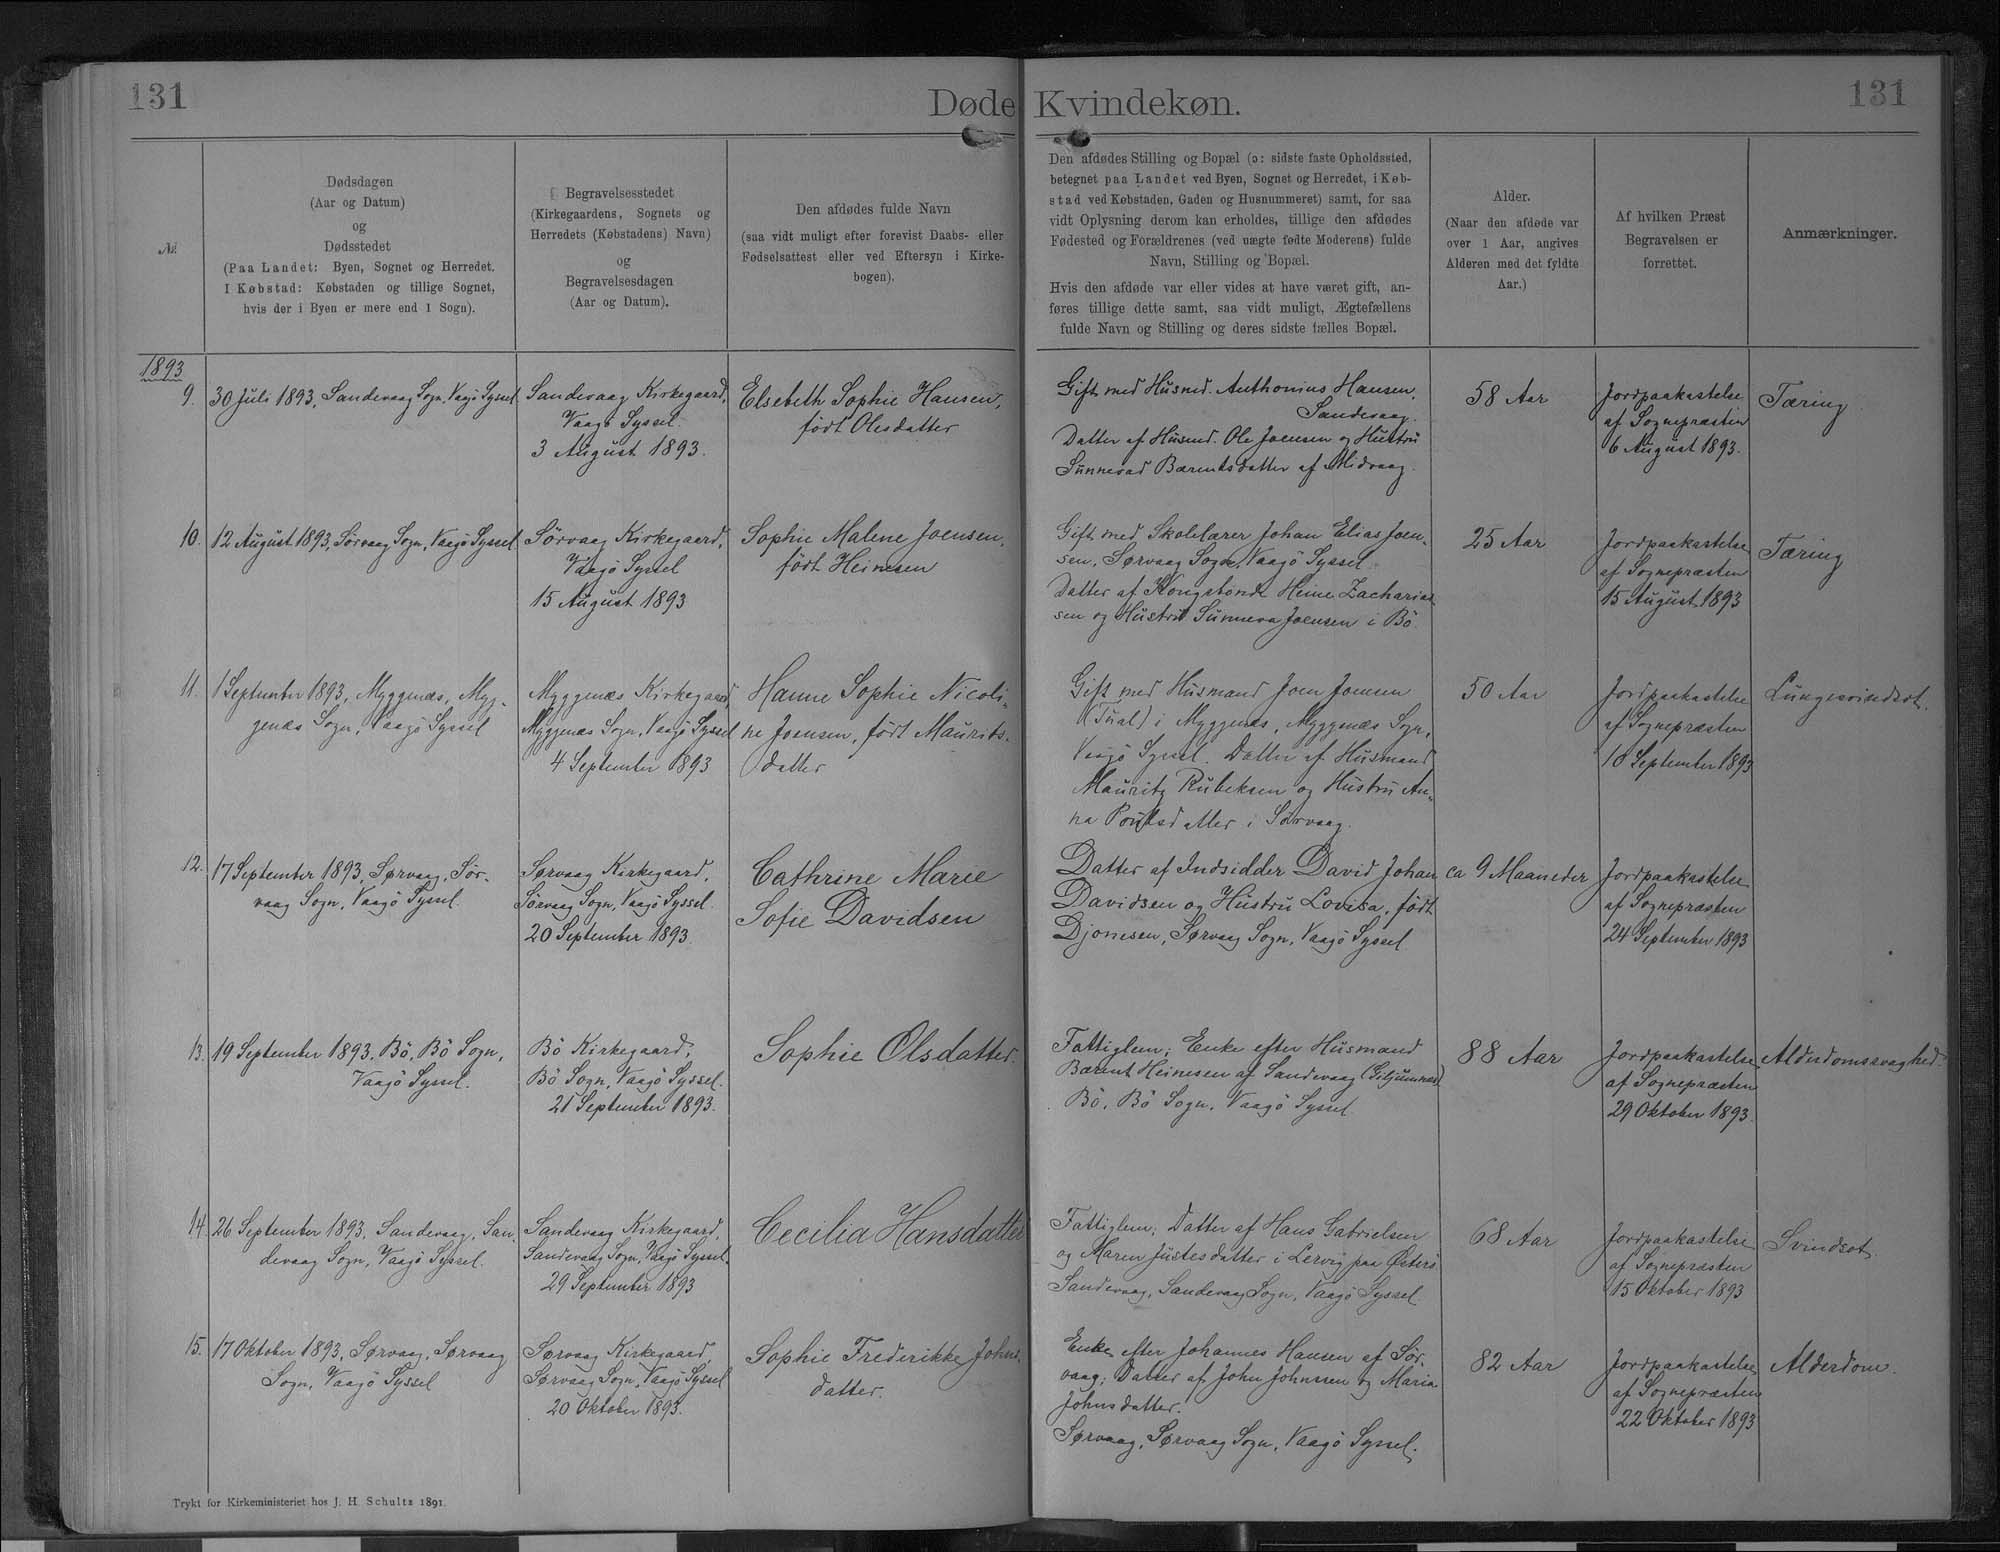 131
Døde Kvindekøn.
131
№
Dødsdagen
(Aar og Datum)
og
Dødsstedet
(Paa Landet: Byen, Sognet og Herredet.
I Købstad: Købstaden og tillige Sognet,
hvis der i Byen er mere end 1 Sogn).
Begravelsesstedet
(Kirkegaardens, Sognets og
Herredets (Købstadens) Navn)
og
Begravelsesdagen
(Aar og Datum).
Den afdødes fulde Navn
(saa vidt muligt efter forevist Daabs- eller
Fødselsattest eller ved Eftersyn i Kirke-
bogen).
Den afdødes Stilling og Bopæl (ɔ: sidste faste Opholdssted,
betegnet paa Landet ved Byen, Sognet og Herredet, i Køb-
stad ved Købstaden, Gaden og Husnummeret) samt, for saa
vidt Oplysning derom kan erholdes, tillige den afdødes
Fødested og Forældrenes (ved uægte fødte Moderens) fulde
Navn, Stilling og Bopæl.
Hvis den afdøde var eller vides at have været gift, an-
føres tillige dette samt, saa vidt muligt, Ægtefællens
fulde Navn og Stilling og deres sidste fælles Bopæl.
Alder.
(Naar den afdøde var
over 1 Aar, angives
Alderen med det fyldte
Aar.)
Af hvilken Præst
Begravelsen er
forrettet.
Anmærkninger.
1893
9.
30 Juli 1893, Sandevaag Sogn, Vaagö Syssel
Sandevaag Kirkegaard,
Vaagö Syssel.
3 August 1893.
Elsebeth Sophie Hansen,
född Olesdatter
Gift med Husmd. Anthonius Hansen,
Sandevaag.
Datter af Husmd. Ole Joensen og Hustru
Sunnevad Bærentsdatter af Midvaag.
58 Aar
Jordpaakastelse
af Sognepræsten
6 August 1893.
Tæring
10.
12 August 1893, Sörvaag Sogn, Vaagö Syssel
Sörvaag Kirkegaard,
Vaagö Syssel
15 August 1893
Sophie Malene Joensen,
född Heinesen
Gift med Skolelærer Johan Elias Joen-
sen, Sørvaag Sogn, Vaagö Syssel.
Datter af Kongsbonde Heine Zacharias
sen og Hustru Sunneva Joensen i Bö.
25 Aar
Jordpaakastelse
af Sognepræsten
15 August 1893
Tæring
11.
1 September 1893, Myggenæs, Myg-
genæs Sogn, Vaagö Syssel
Myggenæs Kirkegaard,
Myggenæs Sogn, Vaagö Syssel
4 September 1893
Hanne Sophie Nicoli-
ne Joensen, född Maurits-
datter
Gift med Husmand Joen Joensen
i Myggenæs, Myggenæs Sogn,
Vaagö Syssel. Datter af Husmand
Mauritz Rubeksen og Hustru An-
na Poulsdatter i Sörvaag.
50 Aar
Jordpaakastelse
af Sognepræsten
10 September 1893
Lungesvindsot.
12.
17 September 1893, Sørvaag, Sör-
vaag Sogn, Vaagö Syssel.
Sørvaag Kirkegaard,
Sørvaag Sogn, Vaagö Syssel.
20 September 1893.
Cathrine Marie
Sofie Davidsen
Datter af Indsidder David Johan
Davidsen og Hustru Lovisa, född
Djonesen, Sørvaag Sogn, Vaagö Syssel
ca 9 Maaneder
Jordpaakastelse
af Sognepræsten
24 September 1893
13.
19 September 1893, Bö, Bö Sogn,
Vaagö Syssel.
Bö Kirkegaard,
Bö Sogn, Vaagö Syssel.
21 September 1893.
Sophie Olsdatter.
Fattiglem; Enke efter Husmand
Bærent Heinesen af Sandevaag
Bö, Bö Sogn, Vaagö Syssel
88 Aar
Jordpaakastelse
af Sognepræsten
29 Oktober 1893.
Alderdomssvaghed.
14.
26 September 1893, Sandevaag, San-
devaag Sogn, Vaagö Syssel.
Sandevaag Kirkegaard,
Sandevaag Sogn, Vaagö Syssel.
29 September 1893
Cecilia Hansdatter
Fattiglem; Datter af Hans Gabrielsen
og Maren Justesdatter i Lervig paa Østerö
Sandevaag, Sandevaag Sogn, Vaagö Syssel.
68 Aar
Jordpaakastelse
af Sognepræsten
15 Oktober 1893
Svindsot.
15.
17 Oktober 1893, Sørvaag, Sørvaag
Sogn, Vaagö Syssel
Sørvaag Kirkegaard
Sørvaag Sogn, Vaagö Syssel
20 Oktober 1893.
Sophie Frederikke Johns-
datter.
Enke efter Johannes Hansen af Sör-
vaag; Datter af John Johnssen og Maria
Johnsdatter.
Sørvaag, Sørvaag Sogn, Vaagö Syssel.
82 Aar
Jordpaakastelse
af Sognepræsten
22 Oktober 1893
Alderdom.
Trykt for Kirkeministeriet hos J. H. Schultz 1891.